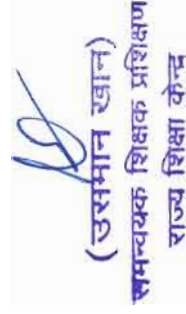 (उसमान खान)
समन्वयक शिक्षक प्रशिक्षण
राज्य शिक्षा केन्द्र